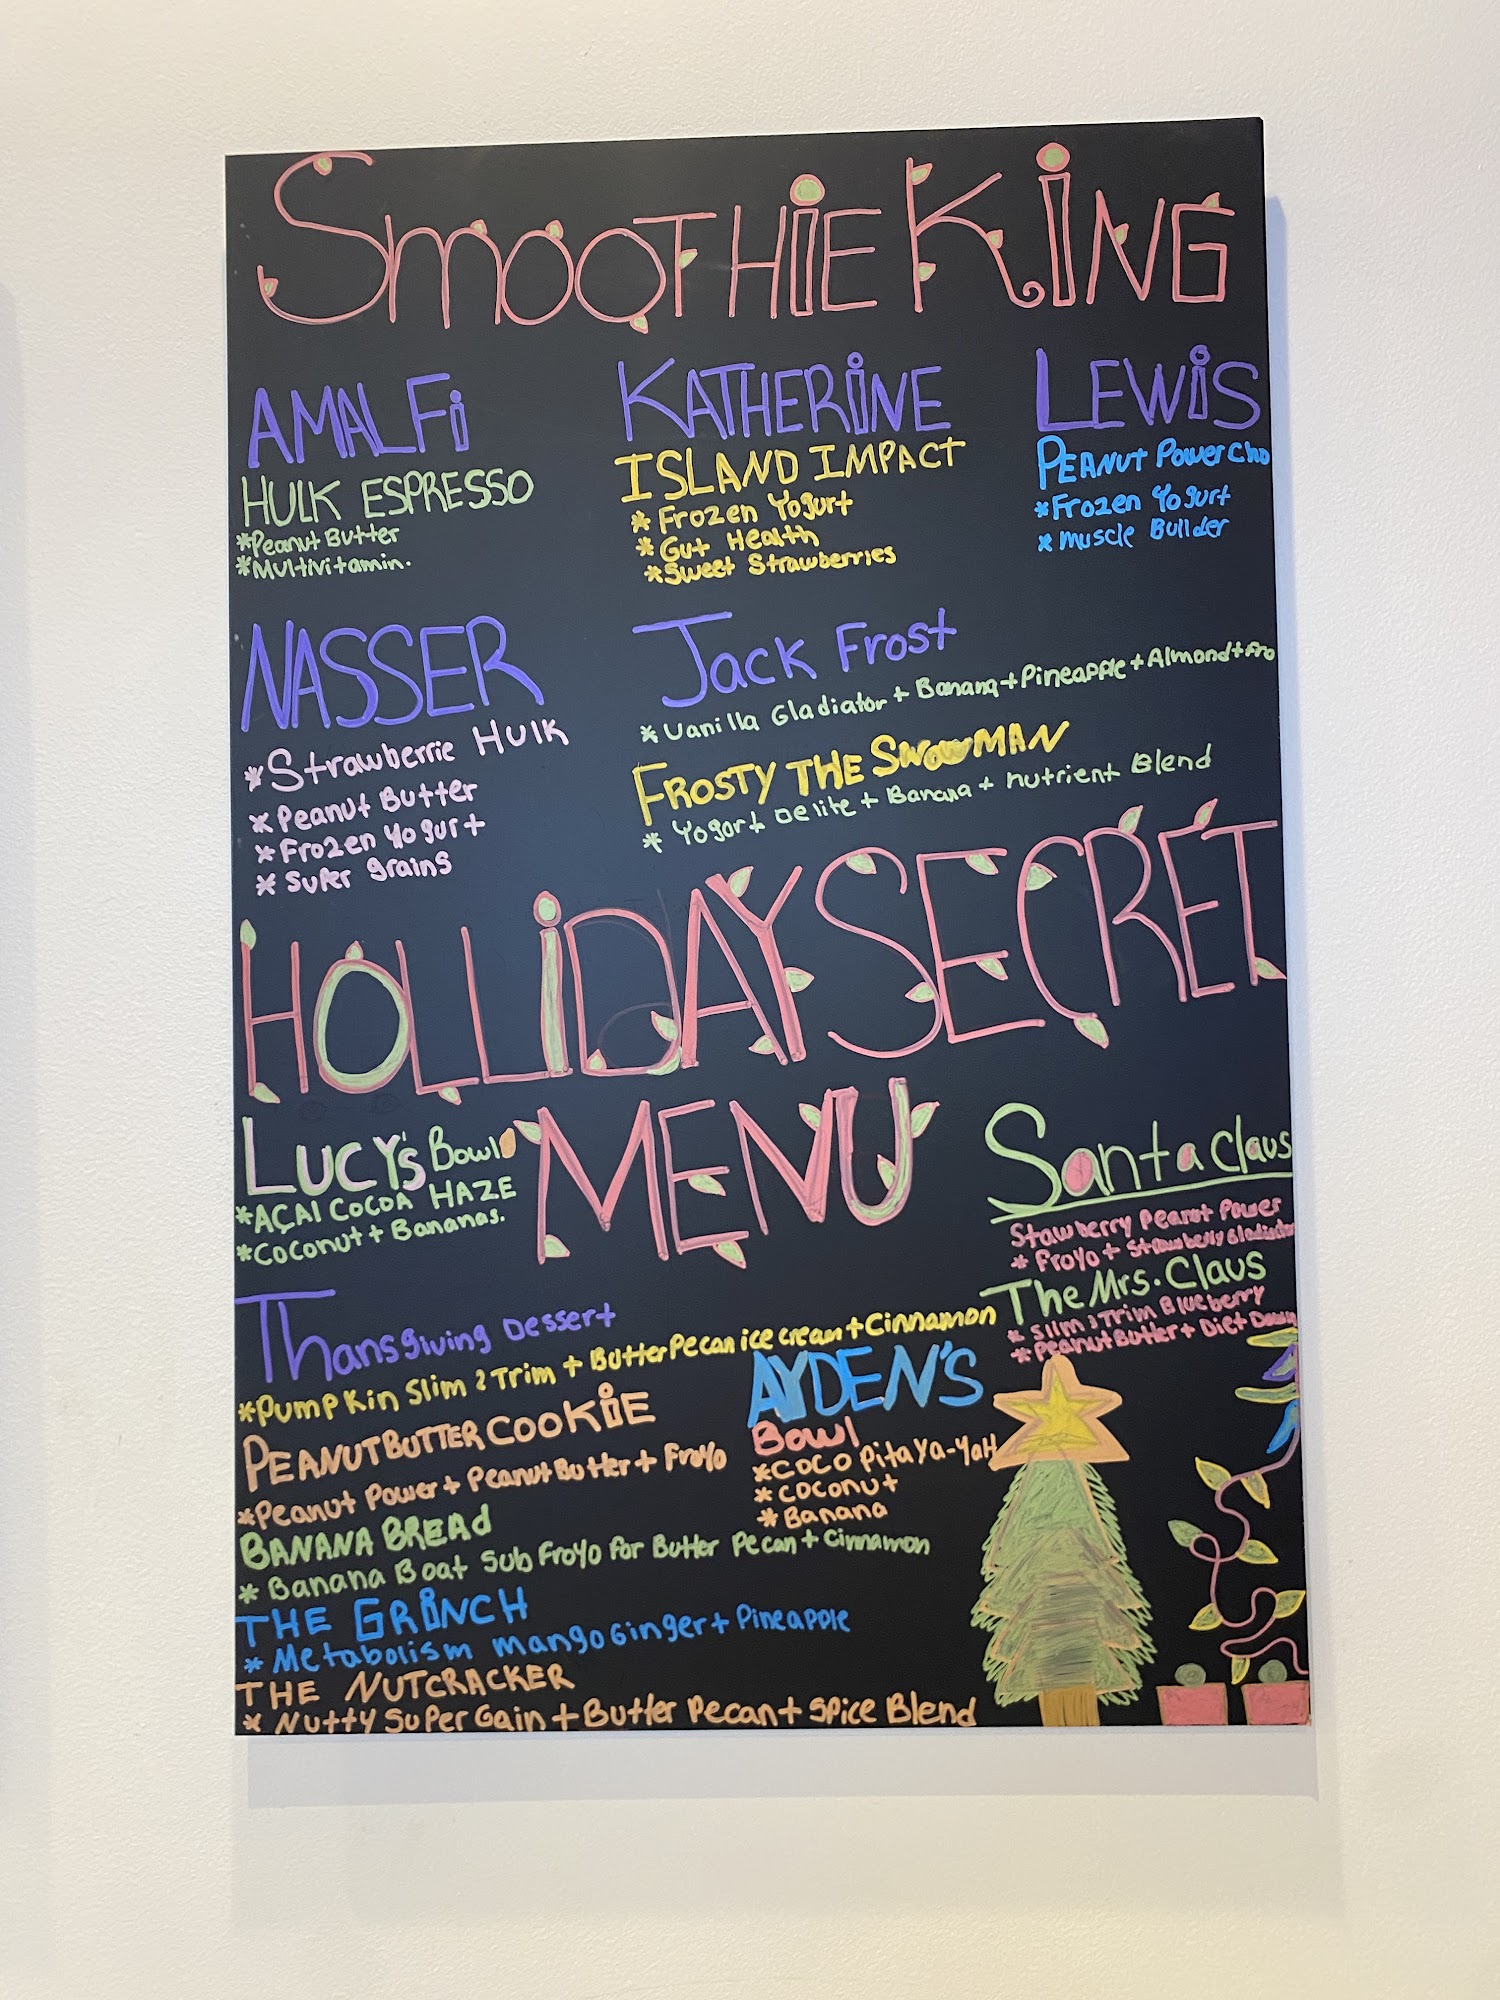 SMOOTHIE KING
AMALFI
HULK ESPRESSO
*Peanut Butter
*Multivitamin.
KATHERINE
ISLAND IMPACT
* Frozen Yogurt
* Gut Health
*Sweet Strawberries
LEWIS
PEANUT Power Cho
*Frozen Yogurt
* Muscle Builder
NASSER
*Strawberrie HULK
* Peanut Butter
* Frozen Yogurt
* Super grains
Jack Frost
* Vanilla Gladiator + Banana + Pineapple + Almond + Fro
FROSTY THE SNOWMAN
* Yogurt Delite + Banana + nutrient Blend
HOLLIDAY SECRET
MENU
LUCY'S Bowl
*AÇAI COCOA HAZE
*Coconut + Bananas.
Santa Claus
Stawberry Peanut Power
* Froyo + Strawberry Gladiator
The Mrs. Claus
* Slim 2 Trim Blueberry
* Peanut Butter + Diet Down
Thansgiving Dessert
*Pumpkin Slim 2 Trim + Butter Pecan ice cream + Cinnamon
PEANUT BUTTER COOKIE
*Peanut Power + Peanut Butter + Froyo
AYDEN'S
Bowl
*COCO Pitaya-yaH
* COCONUT
* Banana
BANANA BREAd
* Banana Boat Sub Froyo for Butter Pecan + Cinnamon
THE GRINCH
* Metabolism mango Ginger + Pineapple
THE NUTCRACKER
* Nutty Super Gain + Butter Pecan + Spice Blend